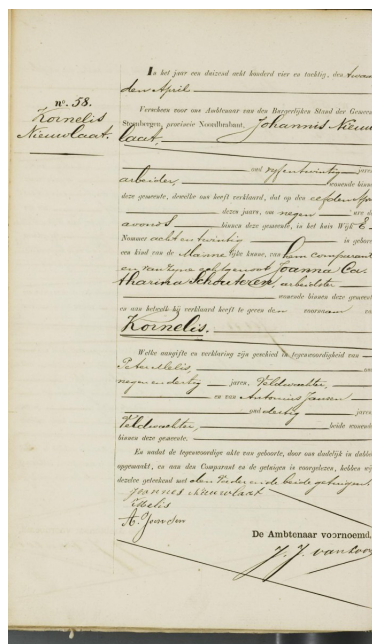 No. 58.
Kornelis
Nieuwlaat.
In het jaar een duizend acht honderd vier en tachtig, den
den April
Verscheen voor ons Ambtenaar van den Burgerlijken Stand der
Steenbergen, provincie Noordbrabant, Johannis
laat,
oud vyfentwintig
arbeider, wonende binnen
deze gemeente, dewelke ons heeft verklaard, dat op den elfden
dezes jaars, om negen ure
avonds binnen deze gemeente, in het huis Wijk E
Nummer achtentwintig is
een kind van de Manne lijke kunne, van hem comparant
en van zyne echtgenoot Joanna Ca-
tharina Schoutezen, arbeidster
wonende binnen deze
en aan hetwelk hij verklaard heeft te geven den voornaam
Kornelis.
Welke aangifte en verklaring zijn geschied in tegenwoordigheid van
Peter Melis,
negenendertig jaren, Veldwachter,
en van Antonius Jansen
oud dertig
Veldwachter, beide
binnen deze gemeente.
En nadat de tegenwoordige akte van geboorte, door ons duidelijk in
opgemaakt, en aan den Comparant en de getuigen is voorgelezen, hebben
dezelve geteekend met den Vader en de beide getuigen.
Joannes Nieuwlaat
Melis
A. Jansen
De Ambtenaar voornoemd,
J. J. van Loon